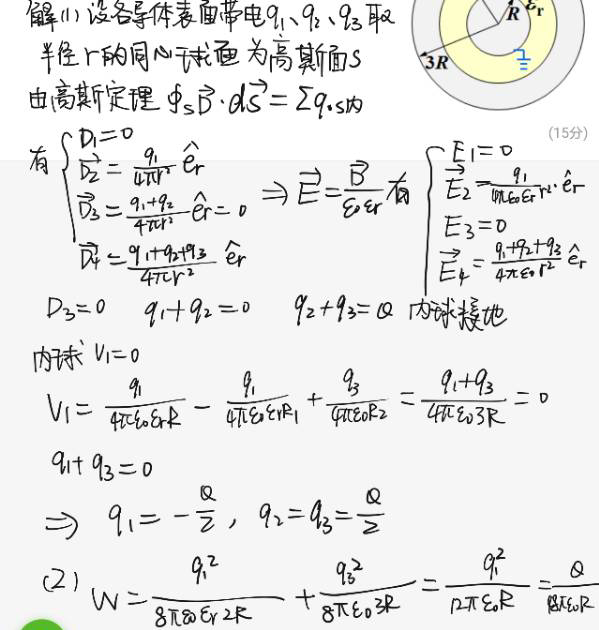 解(1) 设各导体表面带电q₁、q₂、q₃ 取
半径r的同心球面为高斯面S
由高斯定理 ∮ₛD⃗·dS⃗=Σq₀ₛ内
R
εr
3R
(15分)
有 { D₁=0
D⃗₂ = q₁/4πr² êr
D⃗₃ = (q₁+q₂)/4πr² êr = 0
D⃗₄ = (q₁+q₂+q₃)/4πr² êr
⇒ E⃗ = D⃗/ε₀εr 有
{ E₁=0
E⃗₂ = q₁/4πε₀εr r² · êr
E₃=0
E⃗₄ = (q₁+q₂+q₃)/4πε₀r² êr
D₃=0 q₁+q₂=0 q₂+q₃=Q 内球接地
内球 V₁=0
V₁ = q₁/4πε₀εrR − q₁/4πε₀εrR₁ + q₃/4πε₀R₂ = (q₁+q₃)/4πε₀3R = 0
q₁+q₃=0
⇒ q₁=−Q/2, q₂=q₃=Q/2
(2) W = q₁²/8πε₀εr2R + q₃²/8πε₀3R = q₁²/12πε₀R =